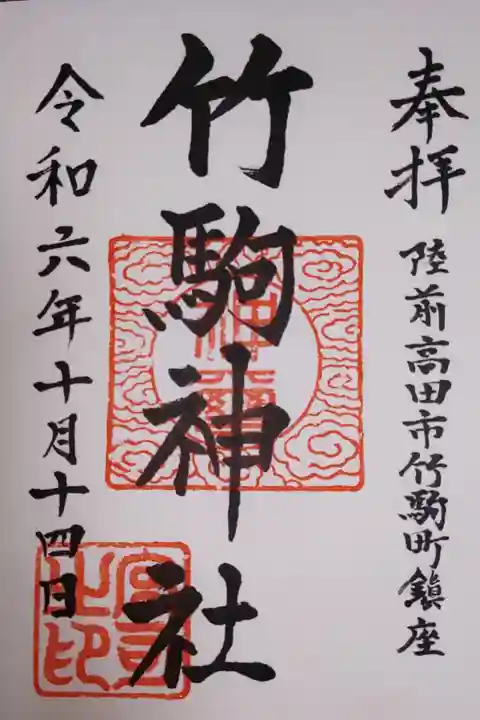 奉拝 陸前高田市竹駒町鎮座
竹駒神社
令和六年十月十四日